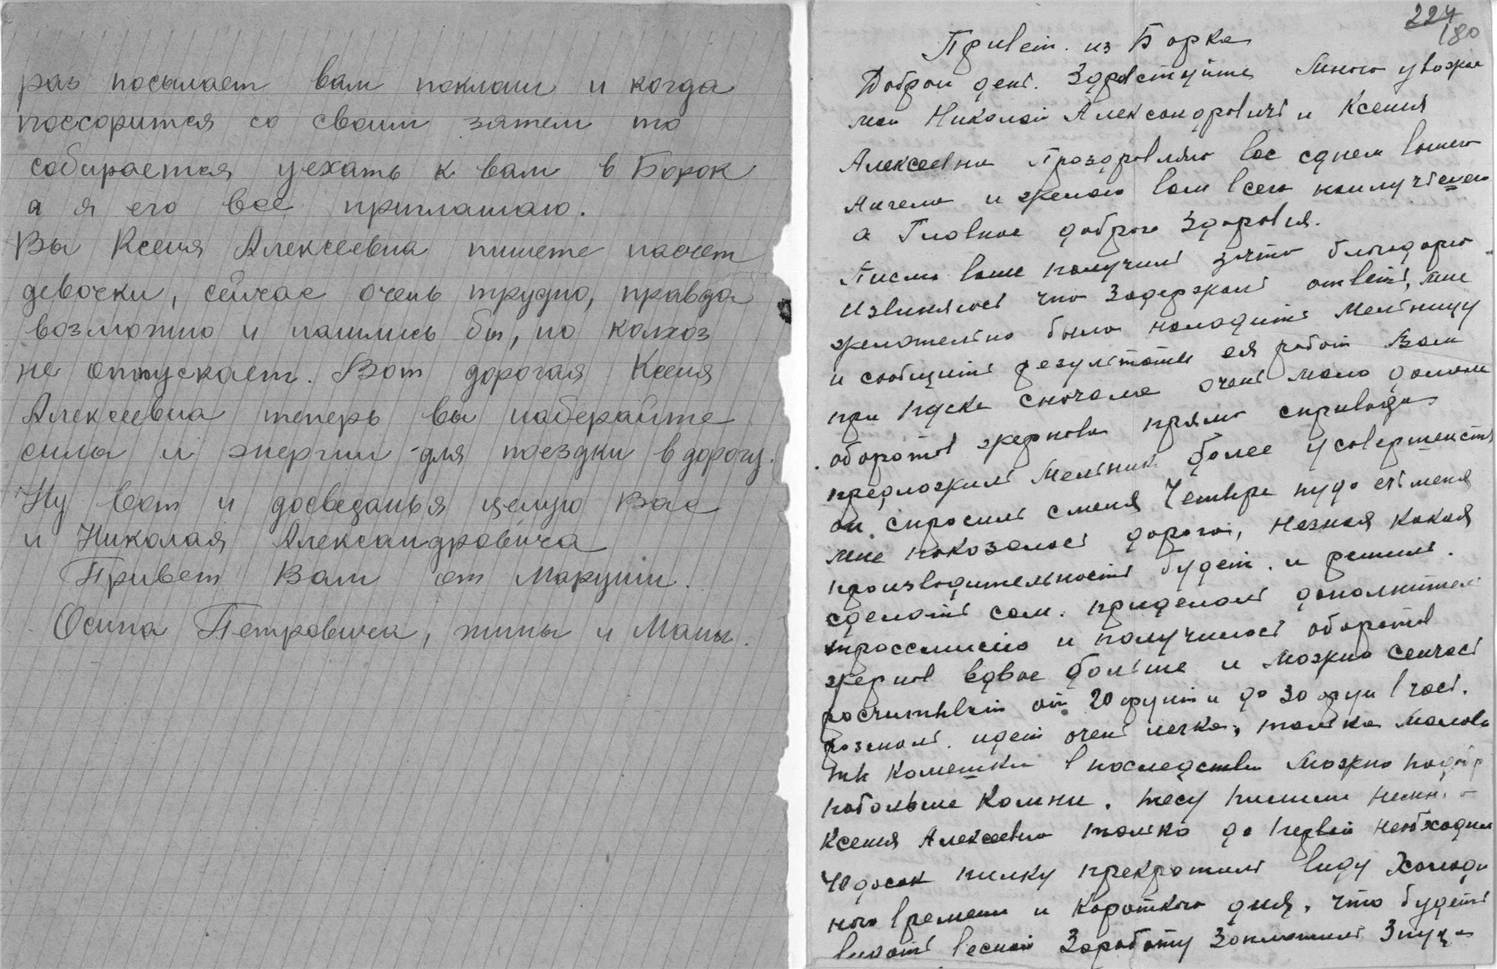 раз посылает вам поклаш и когда
поссорится со своим зятем то
собирается уехать к вам в Борок
а я его все приглашаю.
Вы Ксеня Алексеевна пишете насчет
девочки, сейчас очень трудно, правда
возможно и нашлись бы, но колхоз
не отпускает. Вот дорогая Ксеня
Алексеевна теперь вы наберайте
силы и энергии для поездки в дорогу.
Ну вот и досведанья целую Вас
и Николая Александровича
Привет Вам от Маруши.
Осипа Петровича, жины и Маны.
224
180
Привет. из Борка
Доброй ден. Здравствуйте Много уважае
мои Николай Александрович и Ксения
Алексеевна Проздровляю вас сднем вашего
Ангела и желаю вам всего наилучшего
а Главное доброго Здоровья.
Писмо ваше получил зачто благодарю
Извиняюсь что Задержал ответ, мне
желателно было наладить Мелницу
и сообщить резултаты ея работ Вам
при пуске сначала очен мало давала
оборотов жернова прямо сприводу
предложил Мелник более усовершенств
он спросил сменя Четыре пудо ячменя
мне показалос дорого, незная какая
производительност будет. и решил.
сделать сам. приделал дополнител
трассмисию и получилос оборотов
жернов вдвое болше и можно сейчас
расчитыват от 20 фунт и до 30 фун в час.
размол. идет очен легко, толко Малова
ты Камешки впоследствии Можно
поболше Камни. тесу пилили немн
Ксения Алексеевна толко до первой необходим
40 досок пилку прекратили ввиду Холодн
ного времени и Короткого дня, что будет
весной Заработу Заплатил